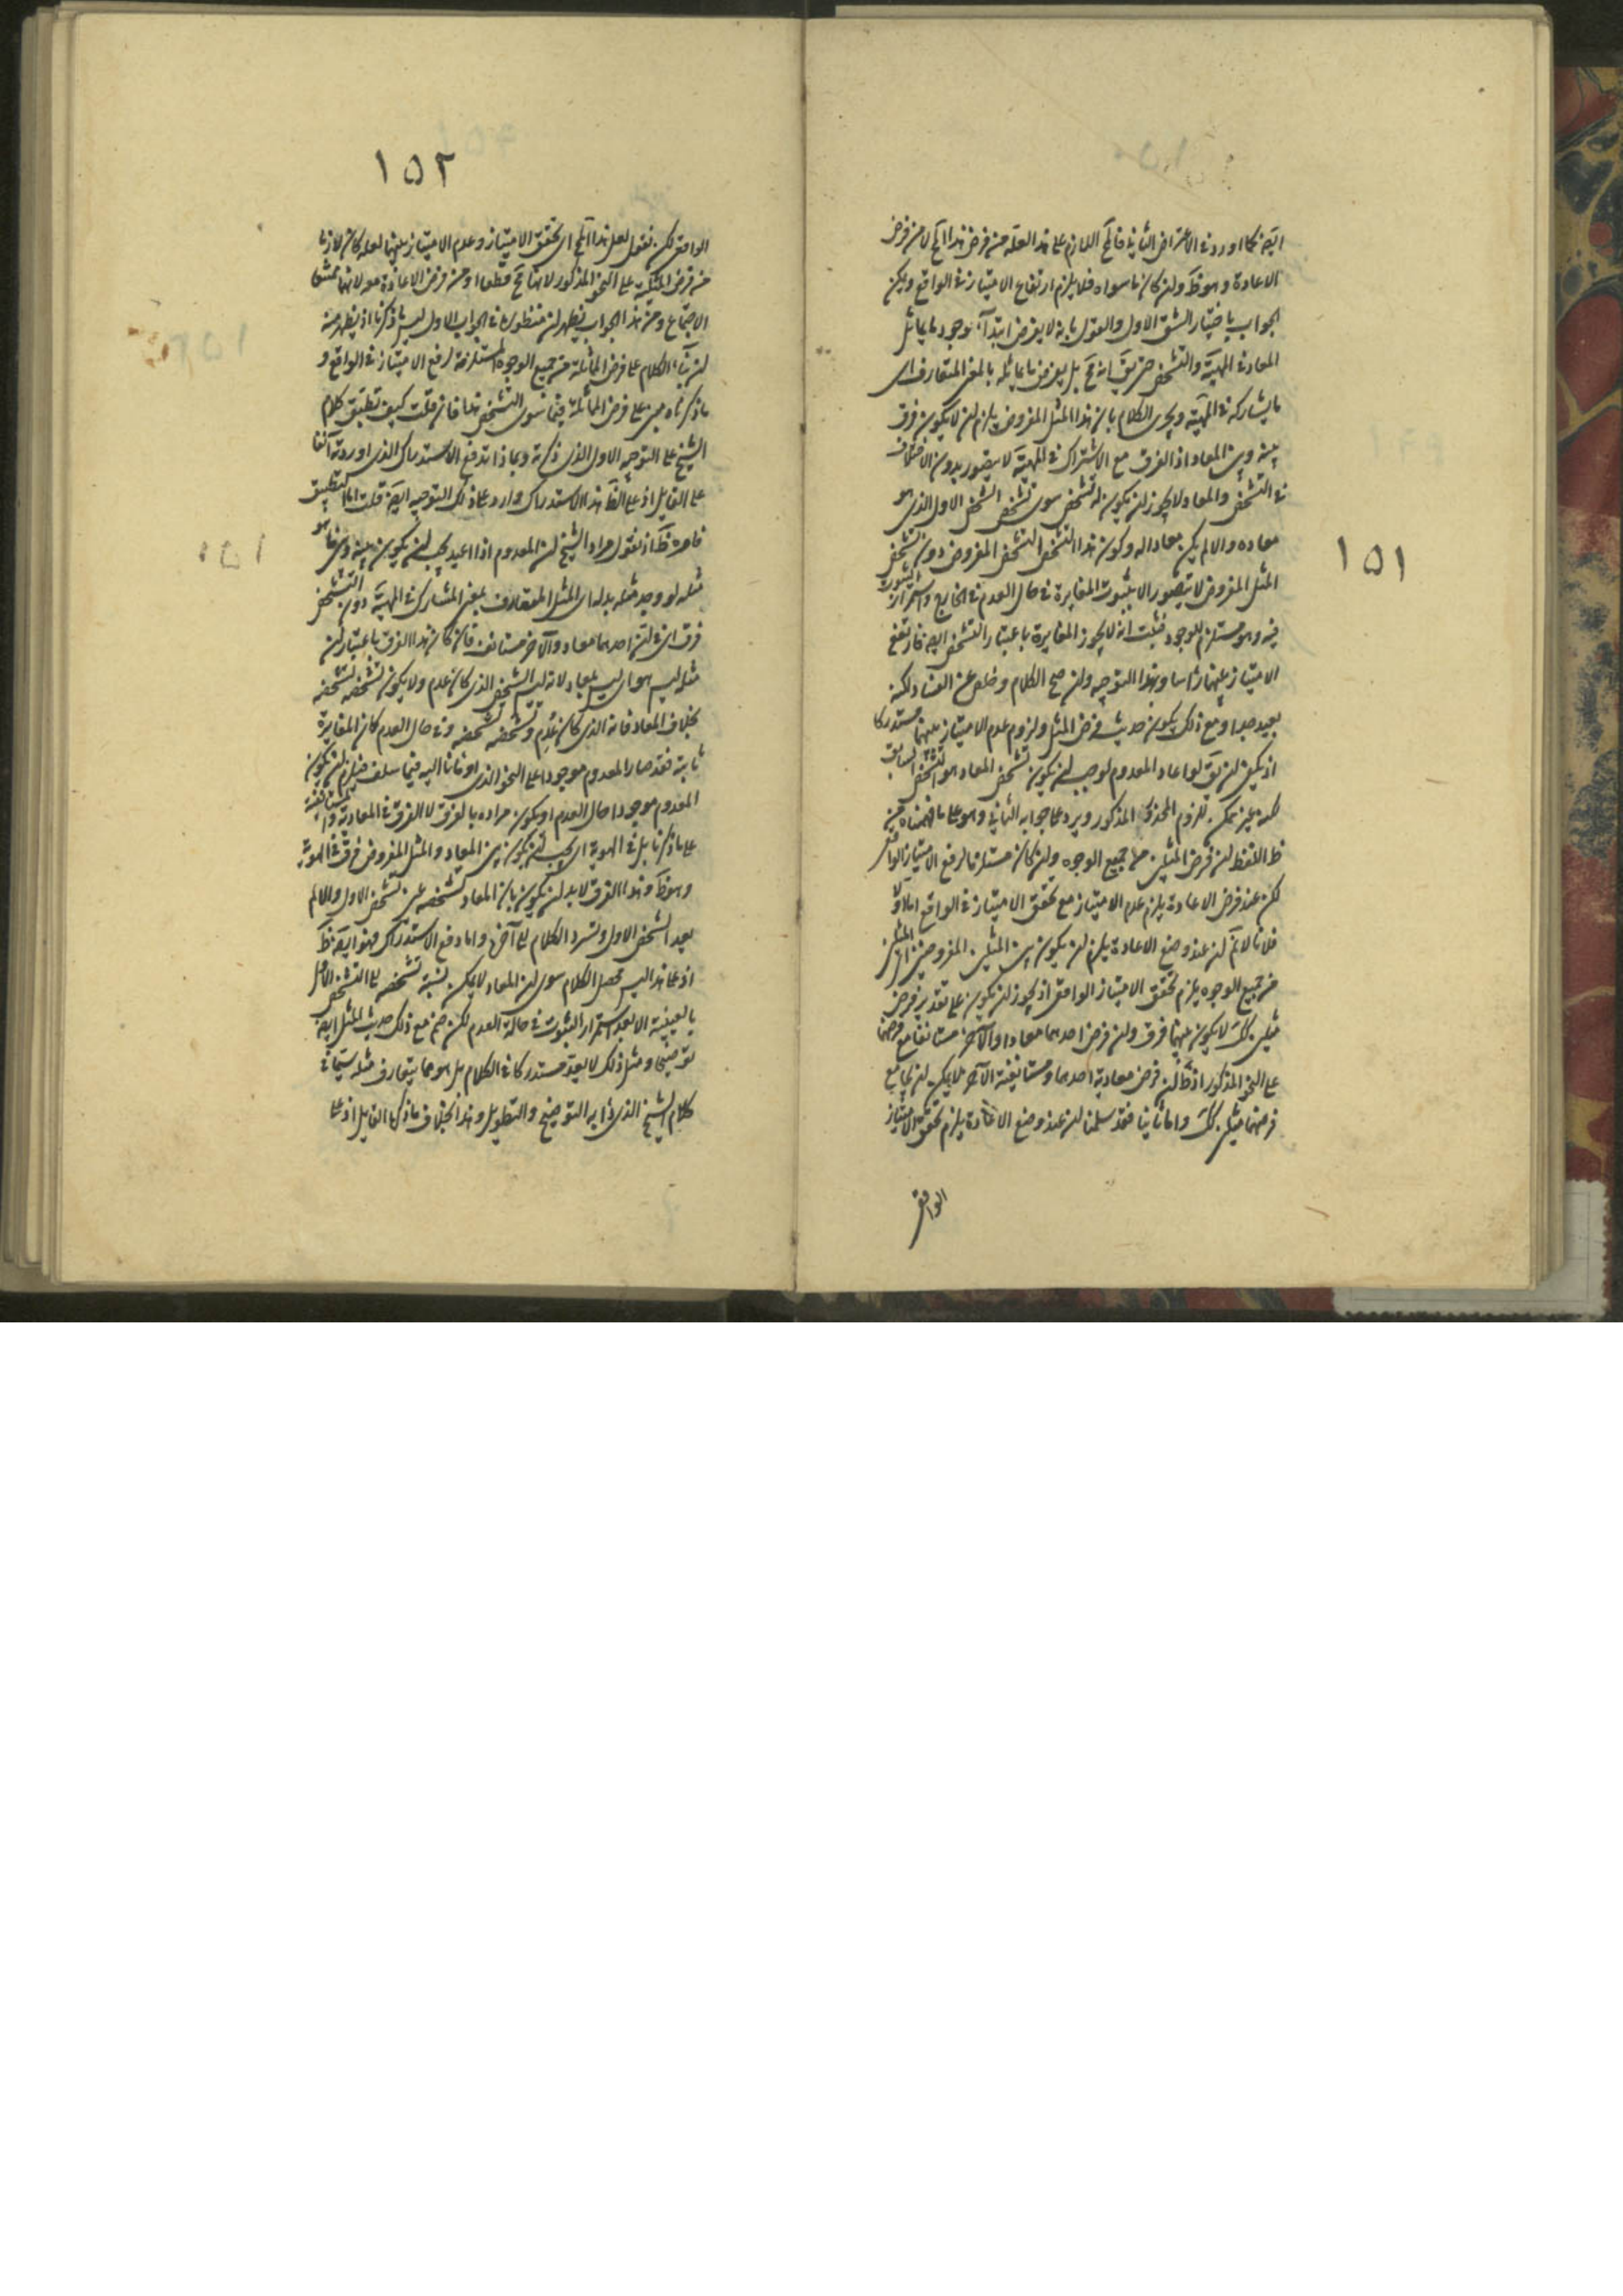 ١٥١
ايضا كما اورد في الاعتراض الثاني فالمح اللازم على هذا لعله من فرض هذا المح لا من فرض
الاعادة وهو ظ وان كان ما سواه فلا يلزم ارتفاع الامتياز في الواقع ويمكن
الجواب باختيار الشق الاول والقول بانه لا يفرض ابتداء وجود ما يماثل
المعاد في المهية والتشخص حتى يق انه مح بل يفرض ما يماثله بالمعنى المتعارف اى
ما يشاركه في المهية ويجرى الكلام بان هذا المثل المفروض يلزم ان لا يكون فرق
بينه وبين المعاد اذ الفرق مع الاشتراك في المهية لا يتصور بدون الاختلاف
في التشخص والمعاد لا يجوز ان يكون له تشخص سوى تشخص الشخص الاول الذى هو
معاده والا لم يكن معادا له وكون هذا التشخص التشخص المفروض دون تشخص
المثل المفروض لا يتصور الا بثبوت المغايرة في حال العدم في الخارج واستمرار الثبوت
فيه وهو مستلزم للوجود فثبت انه لا يجوز المغايرة باعتبار التشخص ايضا فارتفع
الامتياز عنهما راسا وبهذا التوجيه وان صح الكلام وخلص عن الفساد لكنه
بعيد جدا ومع ذلك يكون حديث فرض المثل ولزوم عدم الامتياز بينهما مستدركا
اذ يكفى ان يق لو اعاد المعدوم لوجب ان يكون تشخص المعاد هو التشخص السابق
لكنه غير ممكن للزوم المحذور المذكور ويرد على جوابه الثاني وهو على ما فهمناه من
ظ اللفظ ان فرض المثلين من جميع الوجوه وان كان مستلزما لرفع الامتياز الواقعى
لكن عند فرض الاعادة يلزم عدم الامتياز مع تحقق الامتياز في الواقع اما اولا
فلانا لا نم ان عند وضع الاعادة يلزم ان يكون بين المثلين المفروضين المثلين
من جميع الوجوه يلزم تحقق الامتياز الواقعى اذ يجوز ان يكون على تقدير فرض
مثلين كك لا يكون بينهما فرق وان فرض احدهما معادا والآخر مستانفا مع فرضهما
على النحو المذكور اذ ظ ان فرض معادية احدهما ومستانفية الآخر لا يمكن ان يجامع
فرضهما مثلين كك واما ثانيا فقد سلمنا ان عند وضع الاعادة يلزم تحقق الامتياز
الواقعى
١٥٢
الواقعى لكن نقول لعل هذا المح اى تحقق الامتياز وعدم الامتياز بينهما لعله كان لازما
من فرض المثلية على النحو المذكور لانها مح قطعا او من فرض الاعادة معه لانهما
الاجتماع ومن هذا الجواب يظهر ان منظوره في الجواب الاول ليس ما ذكرنا اذ يظهر منه
ان بناء الكلام على فرض المماثلة من جميع الوجوه المستلزمة لرفع الامتياز في الواقع و
ما ذكرناه مبنى على فرض المماثلة فيما سوى التشخص هذا فان قلت كيف تطبيق كلام
الشيخ على التوجيه الاول الذى ذكرته وبماذا تدفع الاستدراك الذى اوردته آنفا
على القايل اذ على الظ هذا الاستدراك وارد على ذلك التوجيه ايضا قلت اما التطبيق
فامره ظ اذ نقول مراد الشيخ ان المعدوم اذا اعيد يجب ان يكون بينه وبين ما هو
مثله لو وجد مثله بدله اى المثل المتعارف بمعنى المشارك في المهية دون التشخص
فرق اى في ان احدهما معاد والآخر مستانف فان كان هذا الفرق باعتبار ان
مثله ليس هو اى ليس بمعاد لانه ليس الشخص الذى كان عدم ولا يكون تشخصه تشخصه
بخلاف المعاد فانه الذى كان عُدِم وتشخصه تشخصه وفي حال العدم كان المغايرة
ثابتة فقد صار المعدوم موجودا على النحو الذى اومانا اليه فيما سلف فيلزم ان يكون
المعدوم موجودا حال العدم او يكون مراده بالفرق لا الفرق في المعادية والمستانفية
على ما ذكرنا بل في الهوية اى يجب ان يكون بين المعاد والمثل المفروض فرق في الهوية
وهو ظ وهذا الفرق لا بد ان يكون بان المعاد تشخصه عين تشخص الاول والا لم
يعد الشخص الاول وتسرد الكلام الى آخره واما دفع الاستدراك فهو ايضا ظ
اذ على هذا ليس محصل الكلام سوى ان المعاد لا يمكن نسبة تشخصه الى التشخص الاول
بالعينية الا بعد استمرار الثبوت في حالة العدم لكن ضم مع ذلك حديث المثل ايضا
توضيحا ومثل ذلك لا يعد مستدركا في الكلام بل هو مما يتعارف مثله سيما في
كلام الشيخ الذى دابه التوضيح والتطويل وهذا بخلاف ما ذكره القايل اذ على